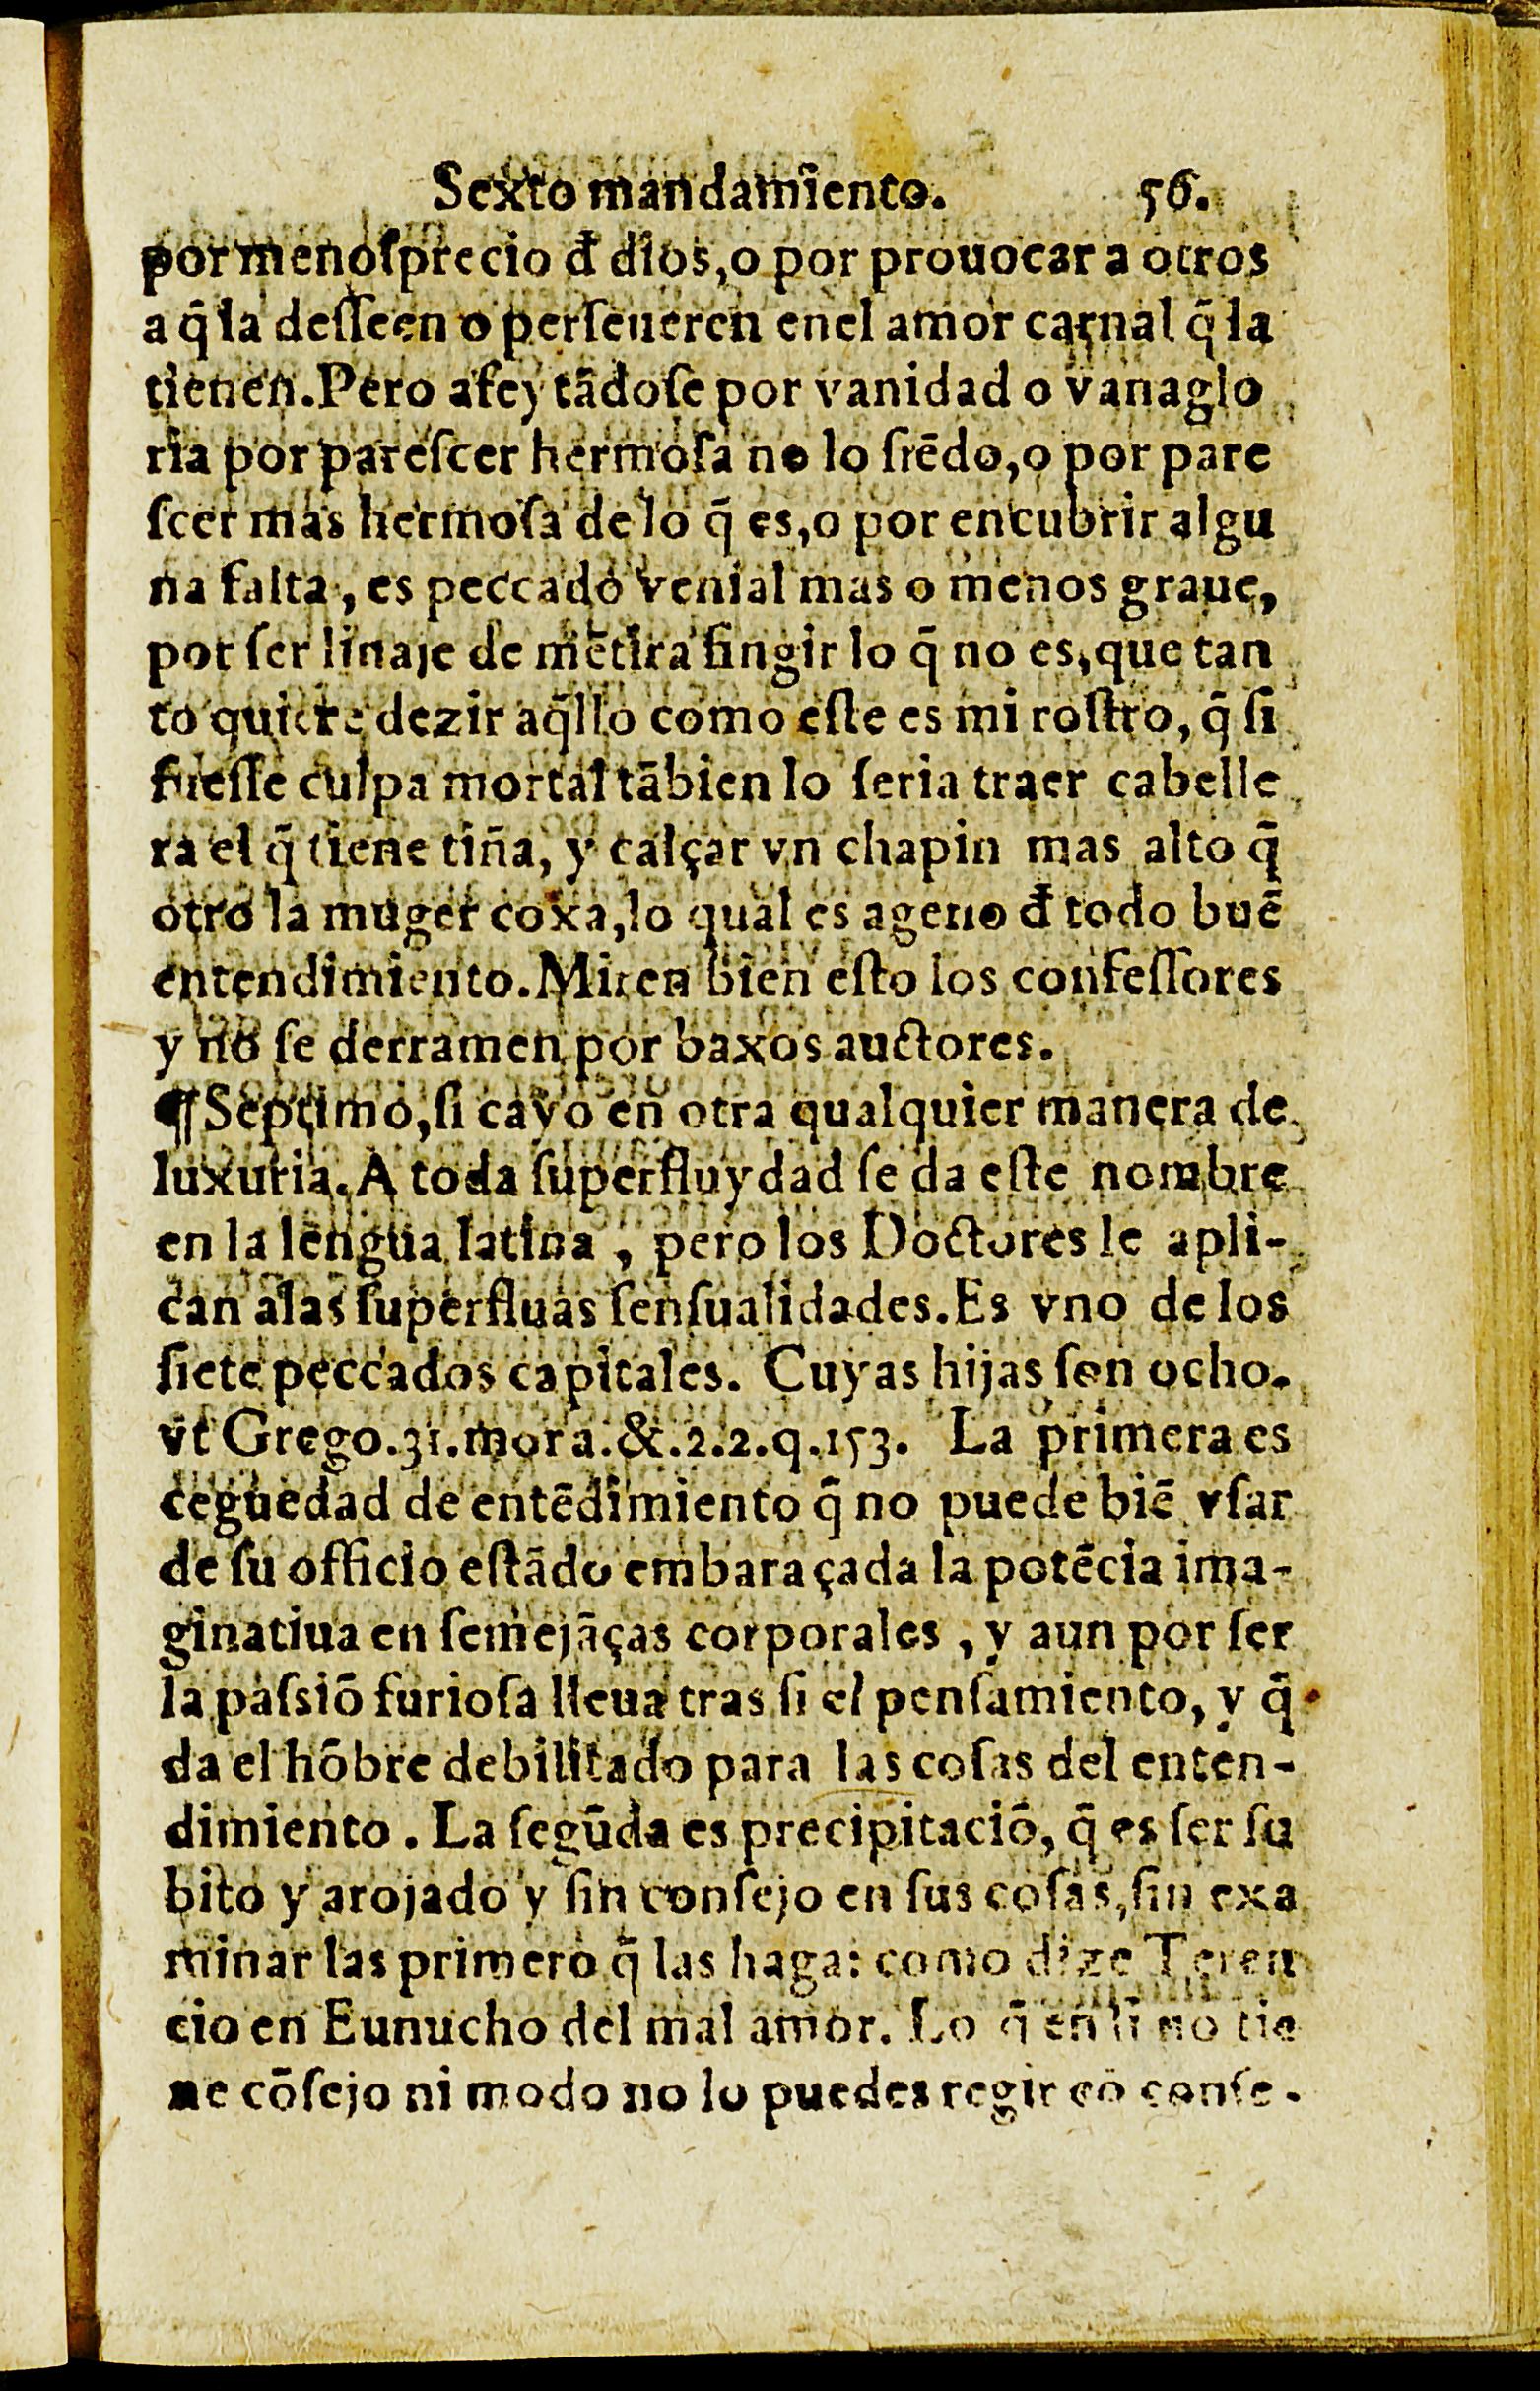 Sexto mandamiento. 56.
por menoſprecio đ dios, o por prouocar a otros
a q̃ la deſſeen o perſeueren enel amor carnal q̃ la
tienen. Pero afeytãdoſe por vanidad o vanaglo
ria por pareſcer hermoſa no lo ſiẽdo, o por pare
ſcer mas hermoſa de lo q̃ es, o por encubrir algu
na falta, es peccado venial mas o menos graue,
por ſer linaje de mẽtira fingir lo q̃ no es, que tan
to quiere dezir aq̃llo como eſte es mi roſtro, q̃ ſi
fueſſe culpa mortal tãbien lo ſeria traer cabelle
ra el q̃ tiene tiña, y calçar vn chapin mas alto q̃
otro la muger coxa, lo qual es ageno đ todo buẽ
entendimiento. Miren bien eſto los confeſſores
y no ſe derramen por baxos auctores.
¶ Septimo, ſi cayo en otra qualquier manera de
luxuria. A toda ſuperfluydad ſe da eſte nombre
en la lengua latina, pero los Doctores le apli-
can alas ſuperfluas ſenſualidades. Es vno de los
ſiete peccados capitales. Cuyas hijas ſon ocho.
vt Grego. 31. mora. &. 2. 2. q. 153. La primera es
ceguedad de entẽdimiento q̃ no puede biẽ vſar
de ſu officio eſtãdo embaraçada la potẽcia ima-
ginatiua en ſemejãças corporales, y aun por ſer
la paſsiõ furioſa lleua tras ſi el penſamiento, y q̃
da el hõbre debilitado para las coſas del enten-
dimiento. La ſegũda es precipitaciõ, q̃ es ſer ſu
bito y arojado y ſin conſejo en ſus coſas, ſin exa
minar las primero q̃ las haga: como dize Teren
cio en Eunucho del mal amor. Lo q̃ en ſi no tie
ne cõſejo ni modo no lo puedes regir cõ conſe.